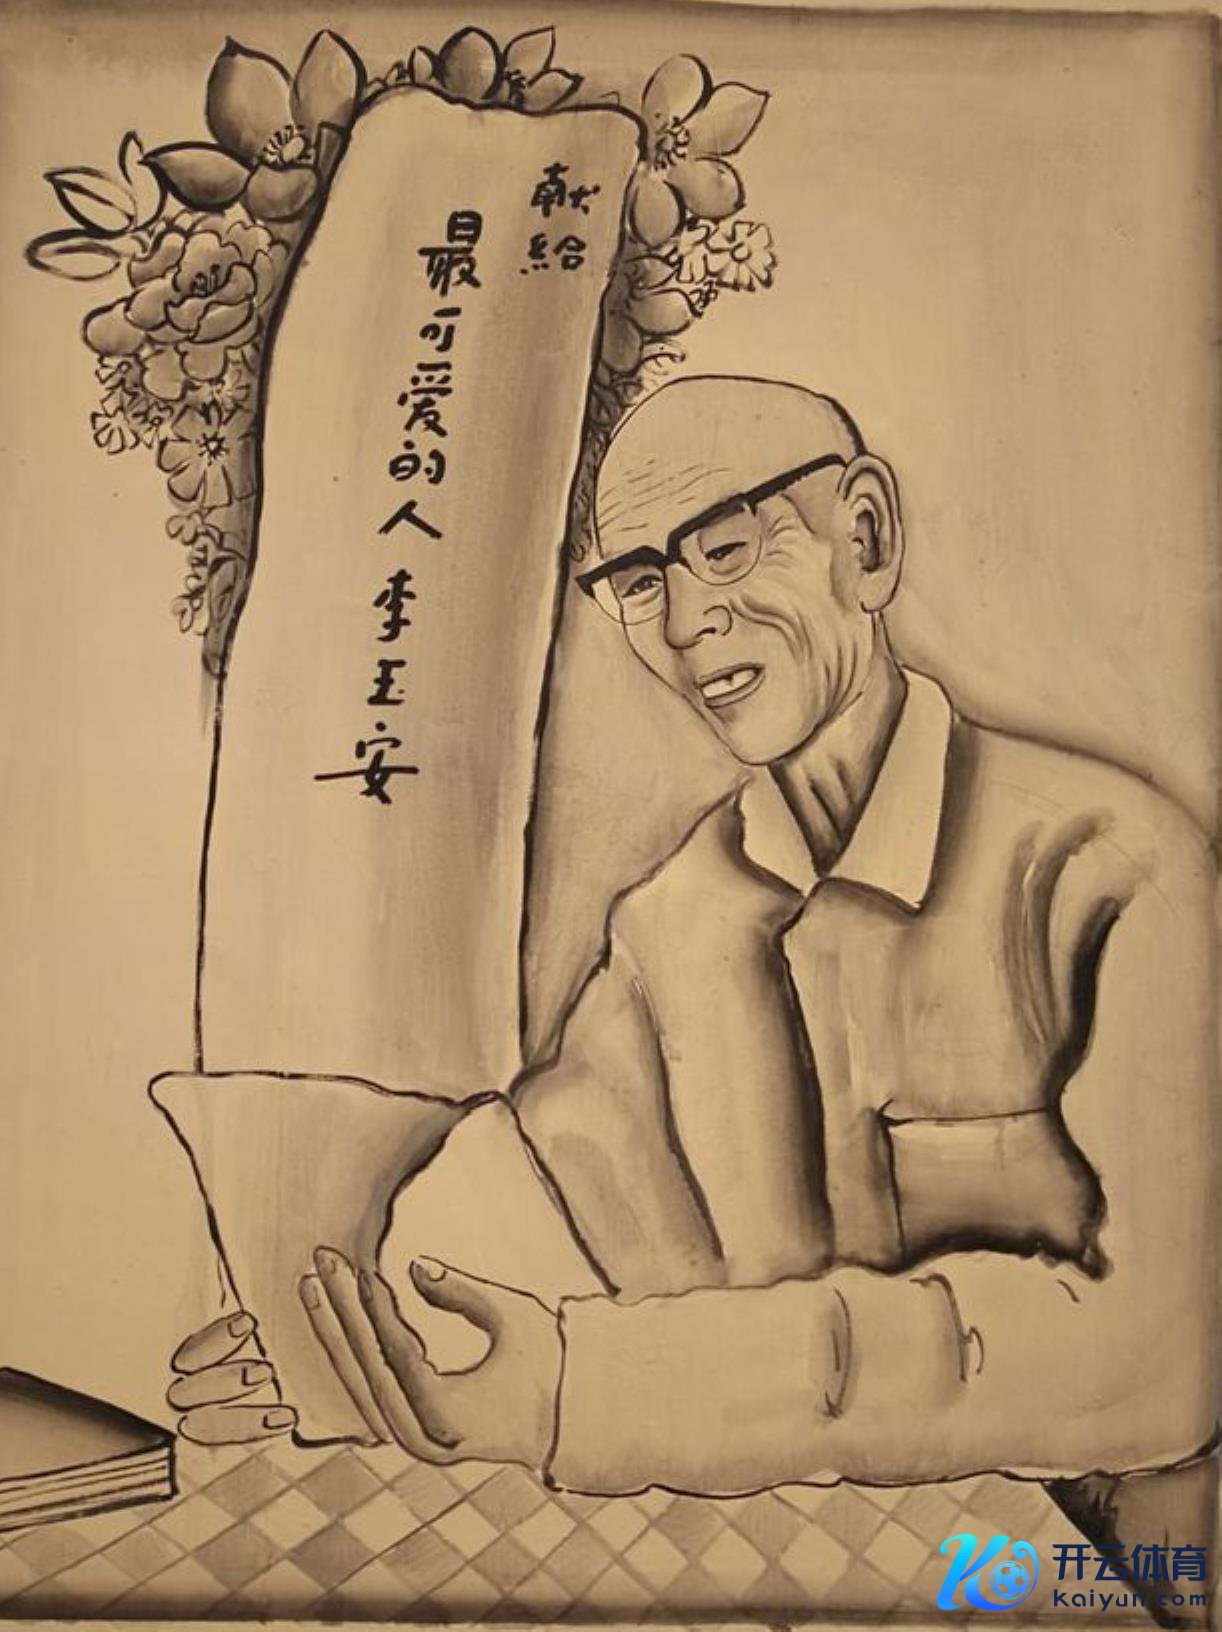 献给
最可爱的人 李玉安
开云体育
Kaiyun.com